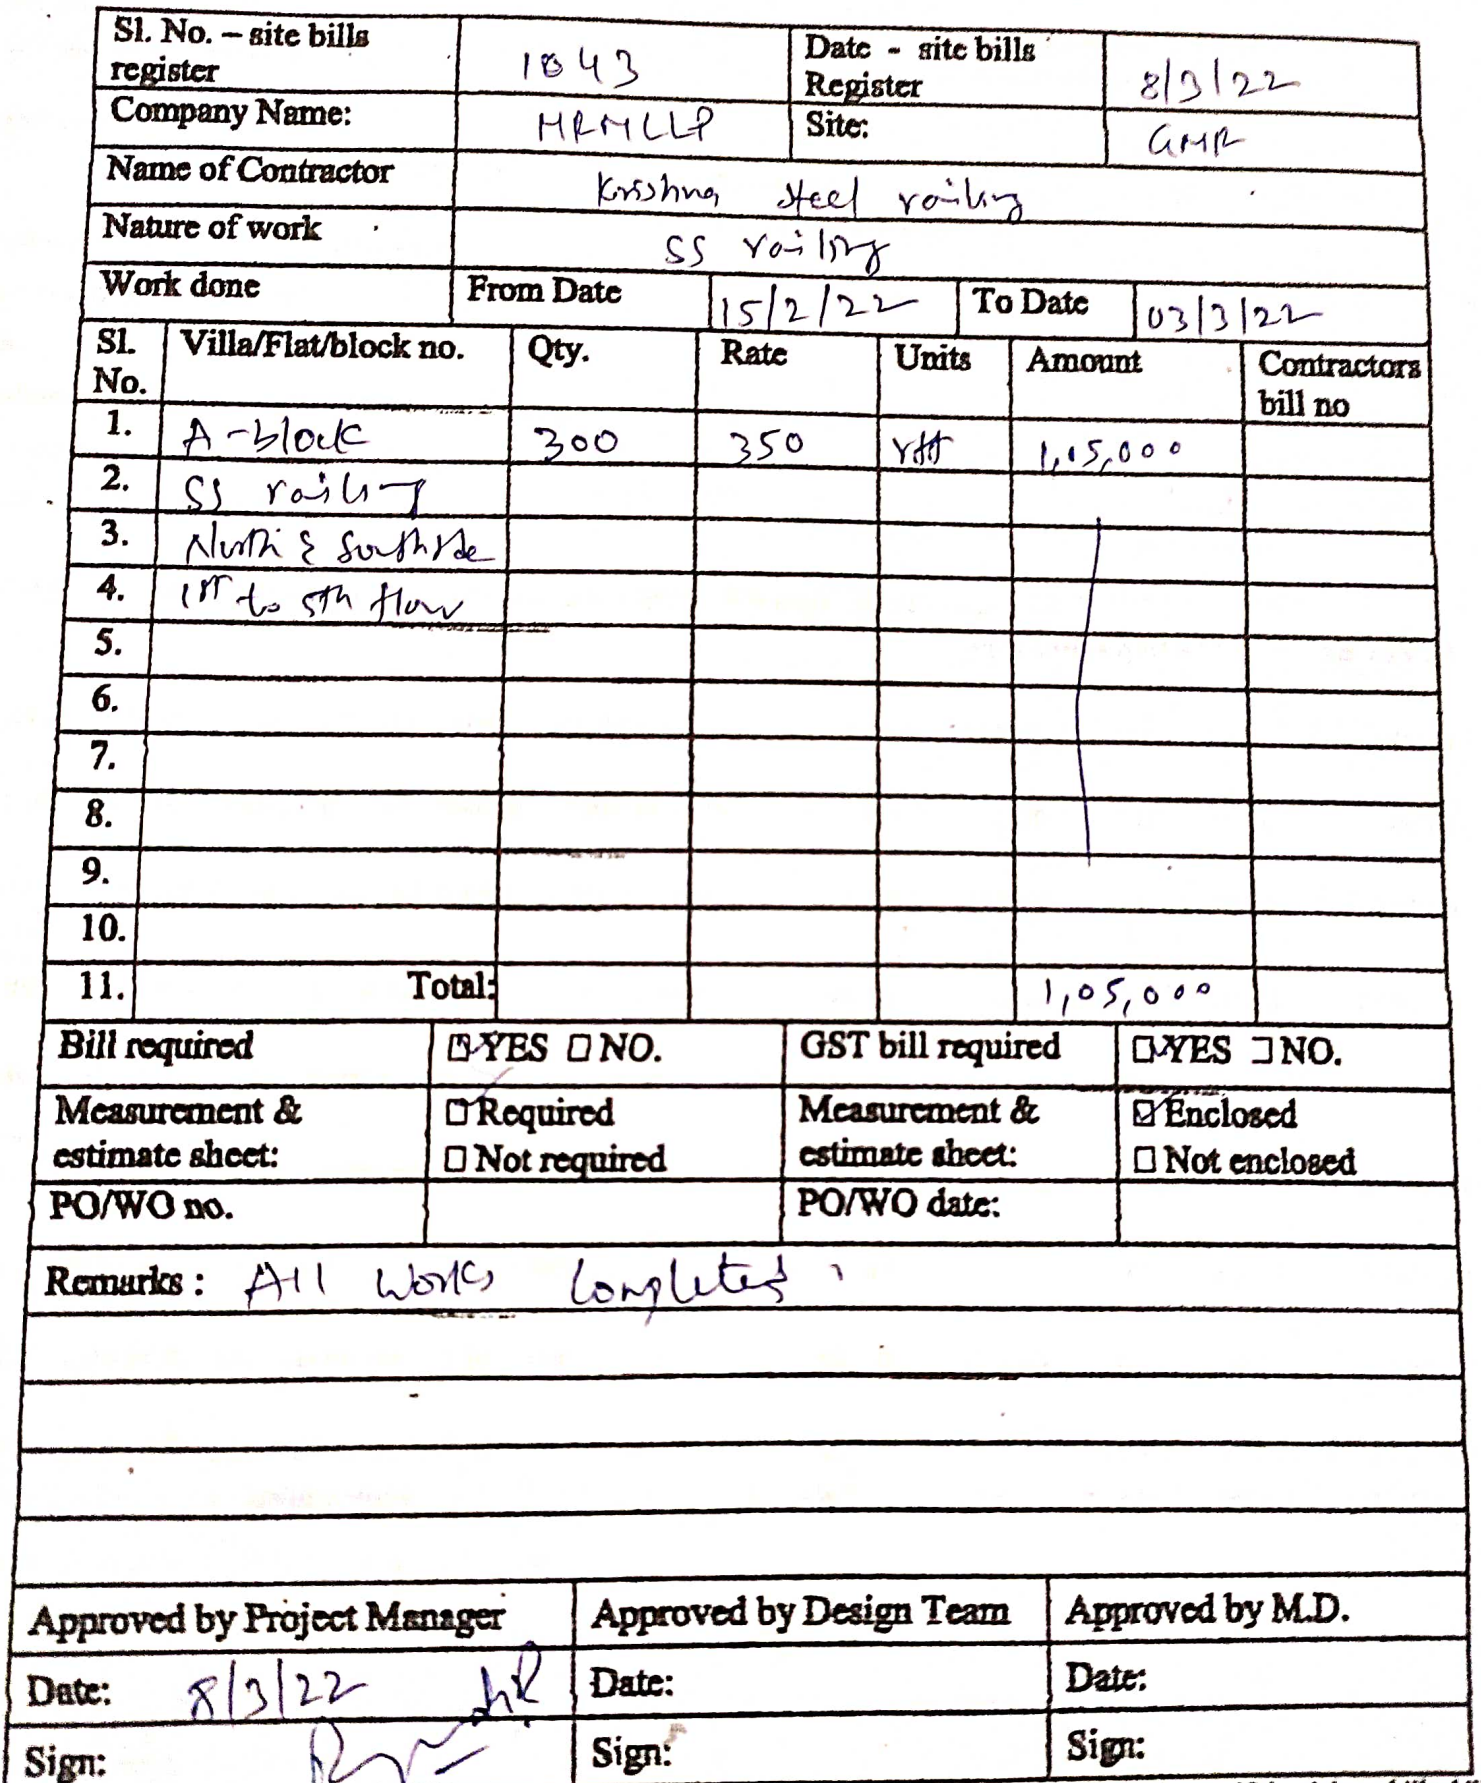 Sl. No. – site bills register 1043 Date - site bills Register 8/3/22
Company Name: MRMLLP Site: GMR
Name of Contractor Krishna steel railing
Nature of work SS railing
Work done From Date 15/2/22 To Date 03/3/22
Sl. No. Villa/Flat/block no. Qty. Rate Units Amount Contractors bill no
1. A-block 300 350 rft 1,05,000
2. SS railing
3. North & South side
4. 1st to 5th floor
5.
6.
7.
8.
9.
10.
11. Total: 1,05,000
Bill required ☑ YES ☐ NO. GST bill required ☑ YES ☐ NO.
Measurement & estimate sheet: ☑ Required ☐ Not required Measurement & estimate sheet: ☑ Enclosed ☐ Not enclosed
PO/WO no. PO/WO date:
Remarks : All works completed
Approved by Project Manager Approved by Design Team Approved by M.D.
Date: 8/3/22 Date: Date:
Sign: Sign: Sign: